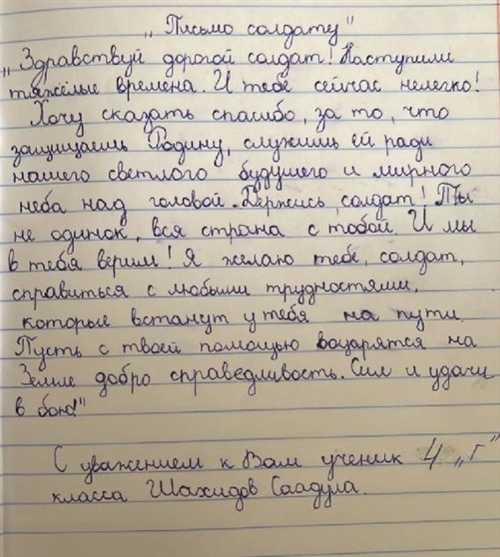 „Письмо солдату"
„Здравствуй дорогой солдат! Наступили
тяжёлые времена. И тебе сейчас нелегко!
Хочу сказать спасибо, за то, что
защищаешь Родину, служишь ей ради
нашего светлого будущего и мирного
неба над головой. Держись, солдат! Ты
не одинок, вся страна с тобой. И мы
в тебя верим! Я желаю тебе, солдат,
справиться с любыми трудностями,
которые встанут у тебя на пути.
Пусть с твоей помощью воцарятся на
Земле добро справедливость. Сил и удачи
в бою!"
С уважением к Вам ученик 4 „г"
класса Шахидов Саадула.